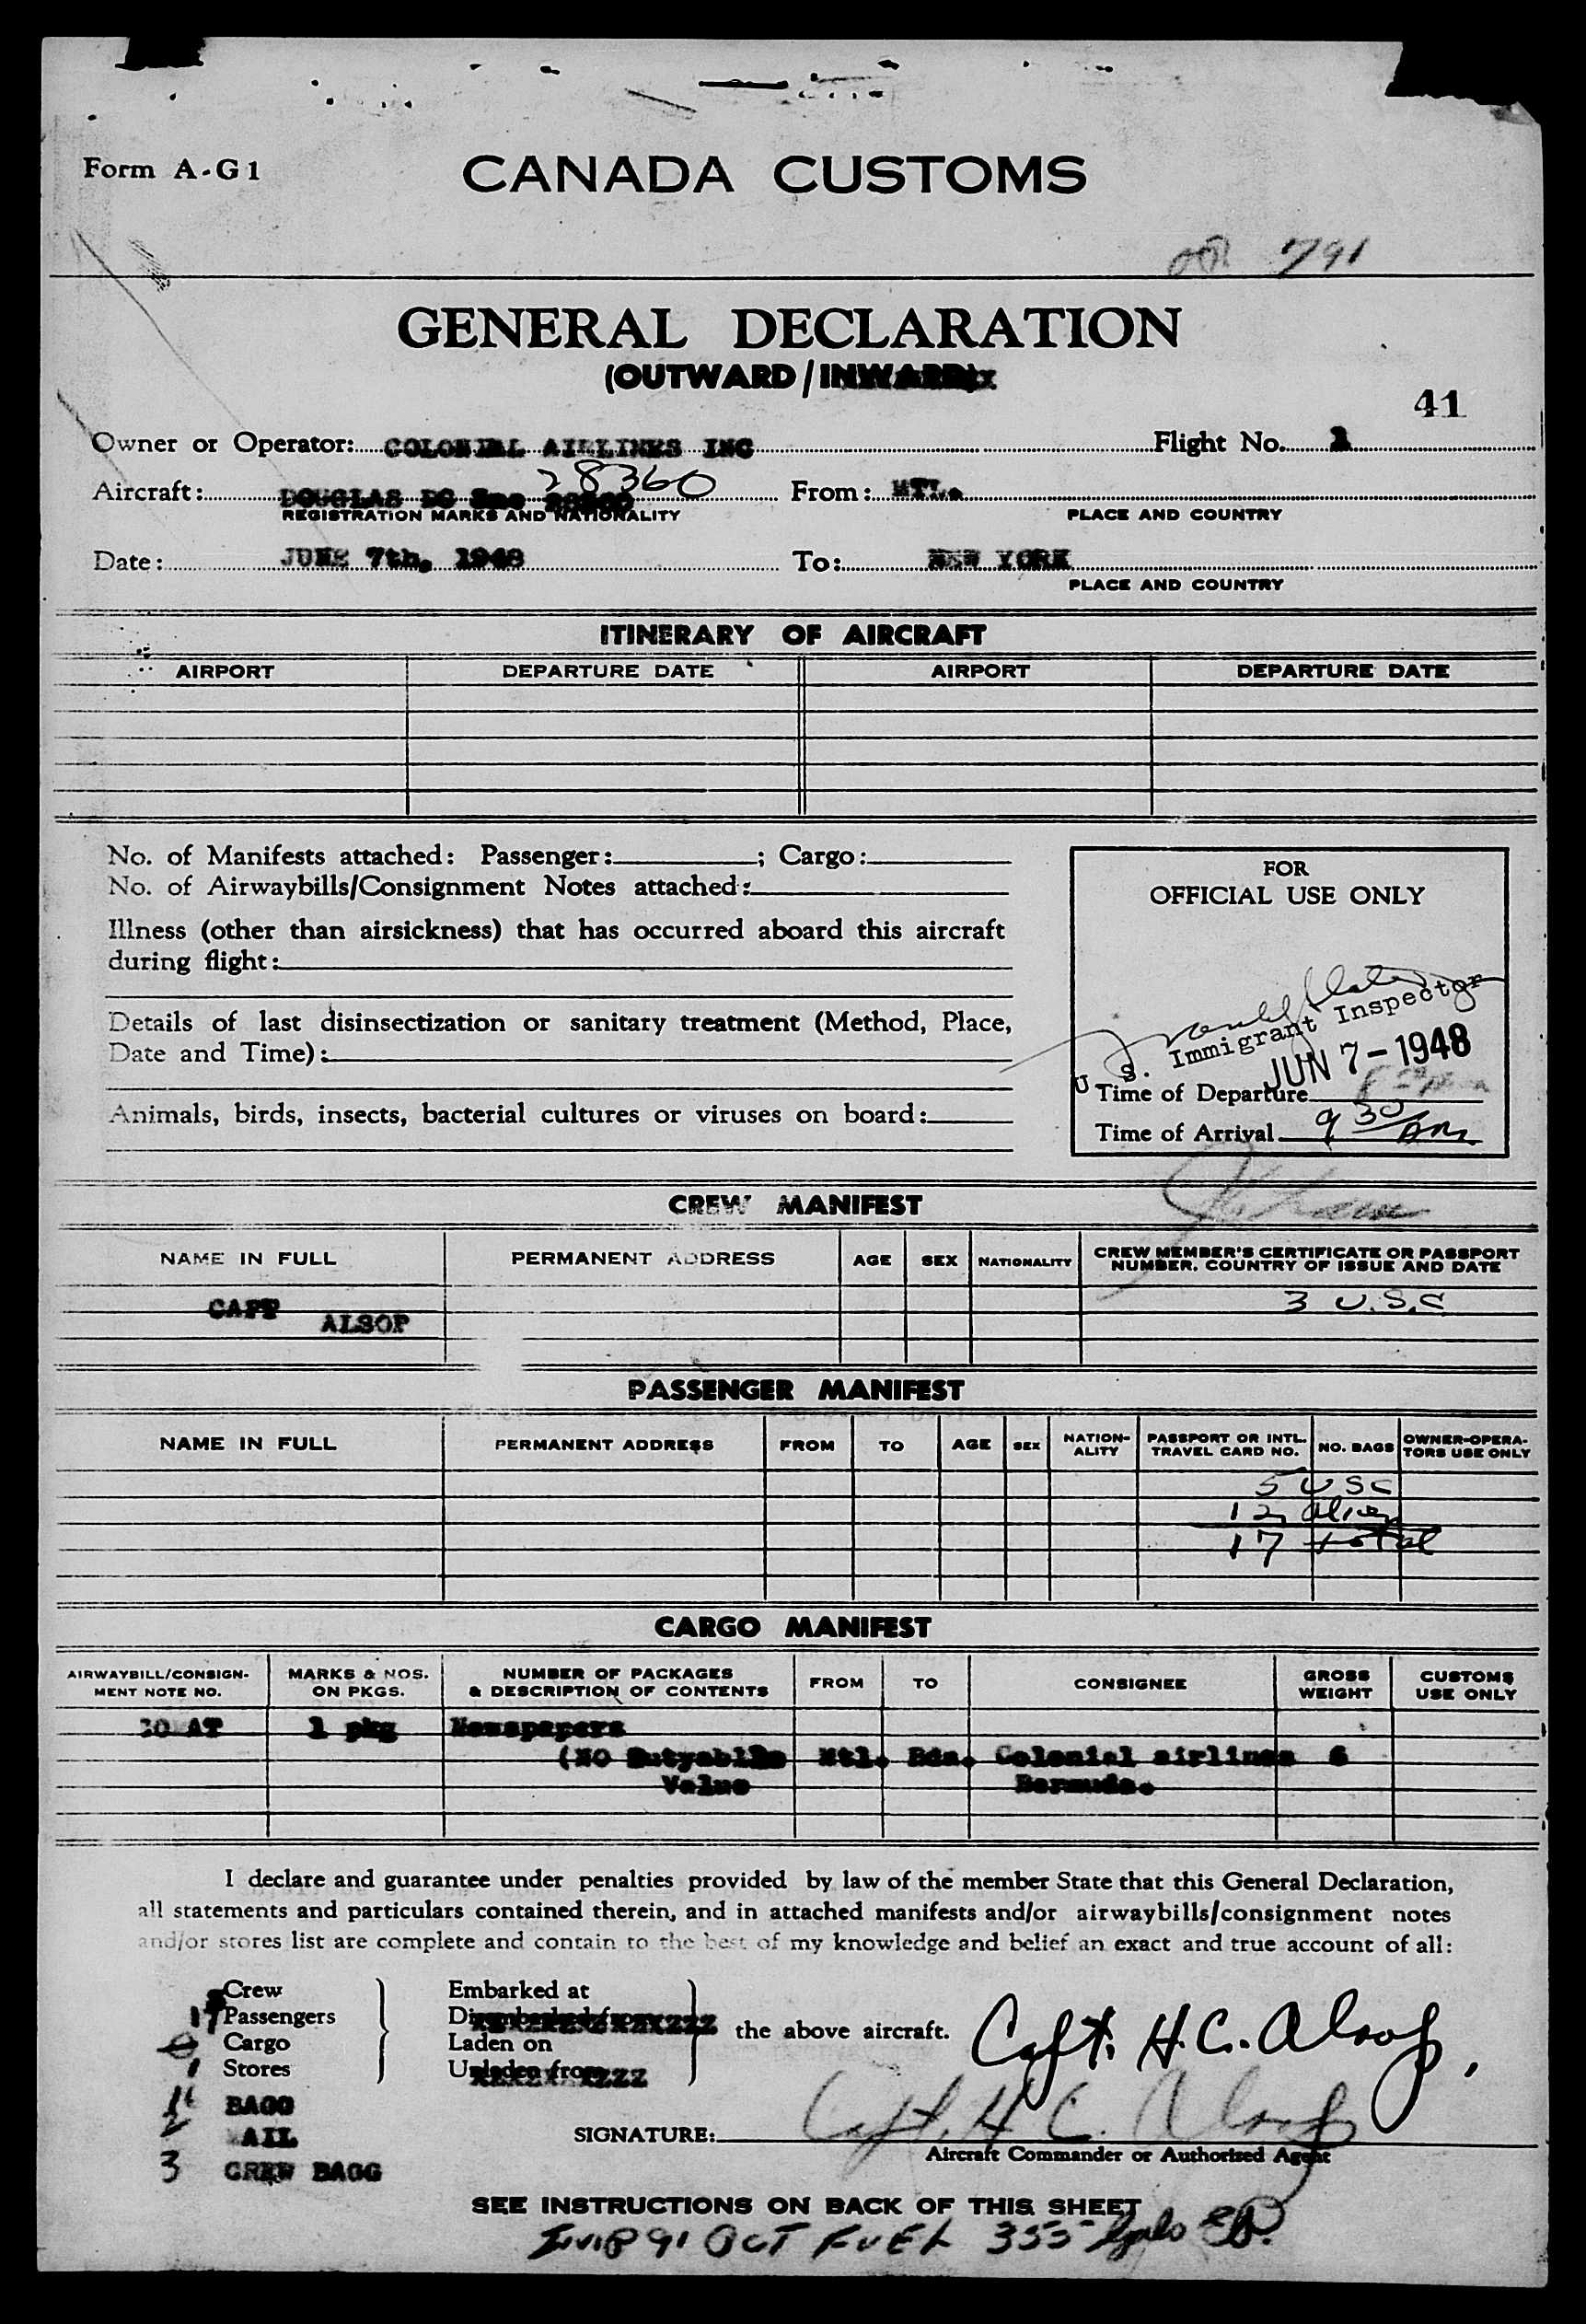 Form A-G1
CANADA CUSTOMS
791
GENERAL DECLARATION
(OUTWARD/INWARD)
41
Owner or Operator: COLONIAL AIRLINES INC Flight No.
28360
Aircraft: DOUGLAS DC From: MTL.
REGISTRATION MARKS AND NATIONALITY PLACE AND COUNTRY
Date: JUNE 7th, 1948 To: NEW YORK
PLACE AND COUNTRY
ITINERARY OF AIRCRAFT
AIRPORT DEPARTURE DATE AIRPORT DEPARTURE DATE
No. of Manifests attached: Passenger: ; Cargo:
No. of Airwaybills/Consignment Notes attached:
Illness (other than airsickness) that has occurred aboard this aircraft
during flight:
Details of last disinsectization or sanitary treatment (Method, Place,
Date and Time):
Animals, birds, insects, bacterial cultures or viruses on board:
FOR
OFFICIAL USE ONLY
U. S. Immigrant Inspector
JUN 7-1948
Time of Departure
Time of Arrival 9 30 AM
CREW MANIFEST
NAME IN FULL PERMANENT ADDRESS AGE SEX NATIONALITY CREW MEMBER'S CERTIFICATE OR PASSPORT
NUMBER, COUNTRY OF ISSUE AND DATE
CAPT 3 U.S.C
ALSOP
PASSENGER MANIFEST
NAME IN FULL PERMANENT ADDRESS FROM TO AGE SEX NATION-
ALITY PASSPORT OR INTL.
TRAVEL CARD NO. NO. BAGS OWNER-OPERA-
TORS USE ONLY
5 USC
12 alien
17 total
CARGO MANIFEST
AIRWAYBILL/CONSIGN-
MENT NOTE NO. MARKS & NOS.
ON PKGS. NUMBER OF PACKAGES
& DESCRIPTION OF CONTENTS FROM TO CONSIGNEE GROSS
WEIGHT CUSTOMS
USE ONLY
CO MAT 1 pkg Newspapers
(NO Dutyable Mtl. Bda. Colonial airlines 6
Value Bermuda.
I declare and guarantee under penalties provided by law of the member State that this General Declaration,
all statements and particulars contained therein, and in attached manifests and/or airwaybills/consignment notes
and/or stores list are complete and contain to the best of my knowledge and belief an exact and true account of all:
Crew Embarked at
17 Passengers Disembarked from
Cargo Laden on
Stores Unladen from
the above aircraft. Capt. H.C. Alsop,
BAGG
MAIL
3 CREW BAGG
SIGNATURE: Capt. H C. Alsop
Aircraft Commander or Authorized Agent
SEE INSTRUCTIONS ON BACK OF THIS SHEET
91 OCT FUEL 355 gals